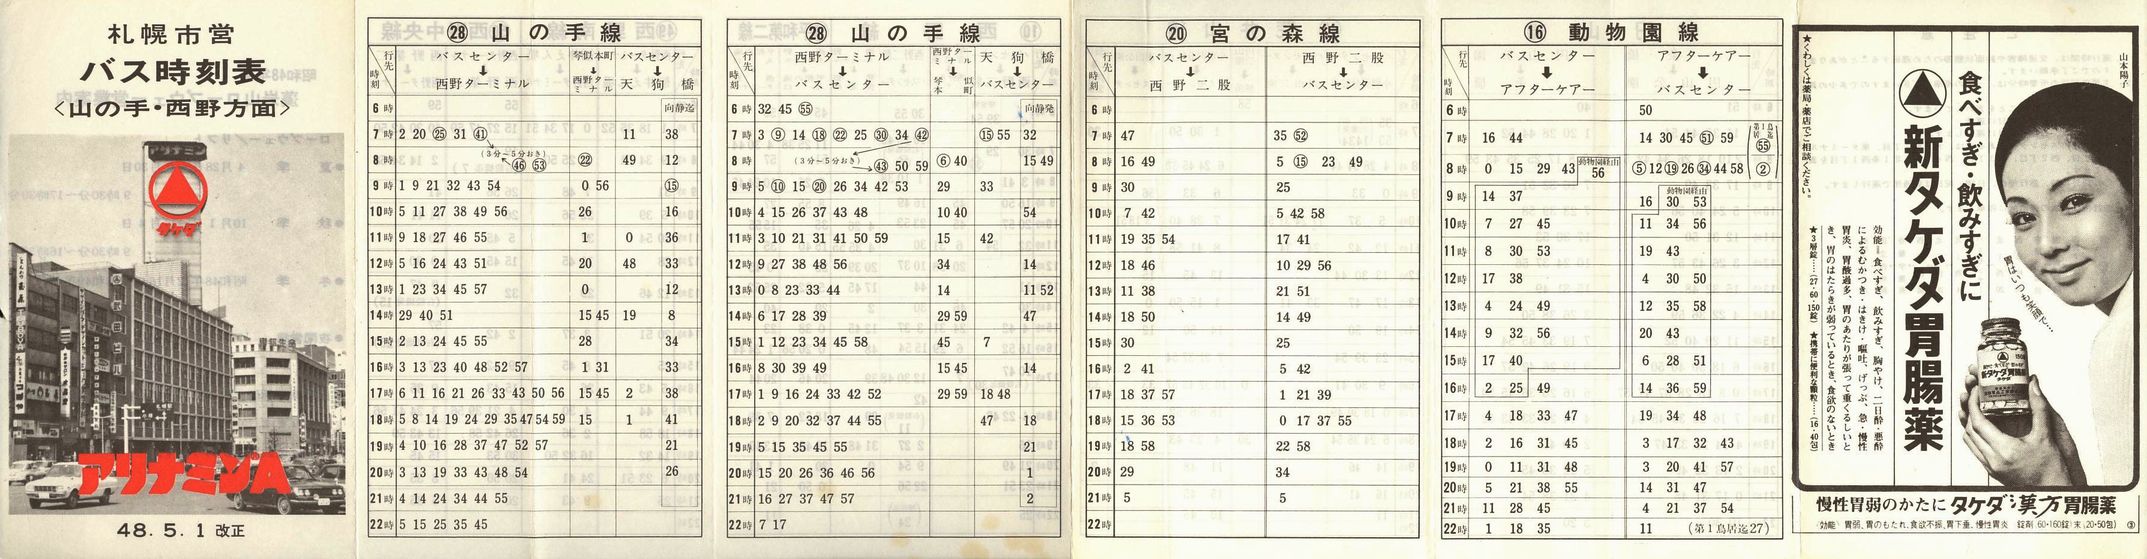 札幌市営
バス時刻表
<山の手・西野方面>
アリナミン
タケダ
アリナミンA
48.5.1 改正
㉘ 山の手線
行先
時刻
バスセンター
↓
西野ターミナル
琴似本町
↓
西野ターミナル
バスセンター
↓
天狗橋
6時 向静迄
7時 2 20 ㉕ 31 ㊶ 11 38
(3分~5分おき)
8時 ㊻ 53 ㉒ 49 12
9時 1 9 21 32 43 54 0 56 ⑮
10時 5 11 27 38 49 56 26 16
11時 9 18 27 46 55 1 0 36
12時 5 16 24 43 51 20 48 33
13時 1 23 34 45 57 0 12
14時 29 40 51 15 45 19 8
15時 2 13 24 45 55 28 34
16時 3 13 23 40 48 52 57 1 31 33
17時 6 11 16 21 26 33 43 50 56 15 45 2 38
18時 5 8 14 19 24 29 35 47 54 59 15 1 41
19時 4 10 16 28 37 47 52 57 21
20時 3 13 19 33 43 48 54 26
21時 4 14 24 34 44 55 2
22時 5 15 25 35 45
㉘ 山の手線
行先
時刻
西野ターミナル
↓
バスセンター
西野ターミナル
↓
琴似本町
天狗橋
↓
バスセンター
6時 32 45 55 向静発
7時 3 ⑨ 14 ⑱ ㉒ 25 ㉚ 34 ㊷ ⑮ 55 32
(3分~5分おき)
8時 ㊸ 50 59 ⑥ 40 15 49
9時 5 ⑩ 15 ⑳ 26 34 42 53 29 33
10時 4 15 26 37 43 48 10 40 54
11時 3 10 21 31 41 50 59 15 42
12時 9 27 38 48 56 34 14
13時 0 8 23 33 44 14 11 52
14時 6 17 28 39 29 59 47
15時 1 12 23 34 45 58 45 7
16時 8 30 39 49 15 45 14
17時 1 9 16 24 33 42 52 29 59 18 48
18時 2 9 20 32 37 44 55 47 18
19時 5 15 35 45 55 21
20時 15 20 26 36 46 56 1
21時 16 27 37 47 57 2
22時 7 17
⑳ 宮の森線
行先
時刻
バスセンター
↓
西野二股
西野二股
↓
バスセンター
6時
7時 47 35 52
8時 16 49 5 ⑮ 23 49
9時 30 25
10時 7 42 5 42 58
11時 19 35 54 17 41
12時 18 46 10 29 56
13時 11 38 21 51
14時 18 50 14 49
15時 30 25
16時 2 41 5 42
17時 18 37 57 1 21 39
18時 15 36 53 0 17 37 55
19時 18 58 22 58
20時 29 34
21時 5 5
22時
⑯ 動物園線
行先
時刻
バスセンター
↓
アフターケアー
アフターケアー
↓
バスセンター
6時 50
7時 16 44 14 30 45 51 59 第1鳥居迄 55
8時 0 15 29 43 動物園経由 56 ⑤ 12 ⑲ 26 ㉞ 44 58 ②
9時 14 37 16 動物園経由 30 53
10時 7 27 45 11 34 56
11時 8 30 53 19 43
12時 17 38 4 30 50
13時 4 24 49 12 35 58
14時 9 32 56 20 43
15時 17 40 6 28 51
16時 2 25 49 14 36 59
17時 4 18 33 47 19 34 48
18時 2 16 31 45 3 17 32 43
19時 0 11 31 48 3 20 41 57
20時 5 21 38 55 14 31 47
21時 11 28 45 4 21 37 54
22時 1 18 35 11 (第1鳥居迄27)
山本陽子
食べすぎ・飲みすぎに
新タケダ胃腸薬
胃はいつも笑顔で…
効能=食べすぎ、飲みすぎ、胸やけ、二日酔・悪酔
によるむかつき・はきけ・嘔吐、げっぷ、急・慢性
胃炎、胃酸過多、胃のあたりが張って重くるしいと
き、胃のはたらきが弱っているとき、食欲のないとき
★3層錠……(27・60・150錠) ★携帯に便利な顆粒……(16・40包)
★くわしくは薬局・薬店でご相談ください。
新タケダ胃腸薬
タケダ
慢性胃弱のかたに タケダ漢方胃腸薬
(効能) 胃弱、胃のもたれ、食欲不振、胃下垂、慢性胃炎 錠剤(60・160錠)・末(20・50包) ③